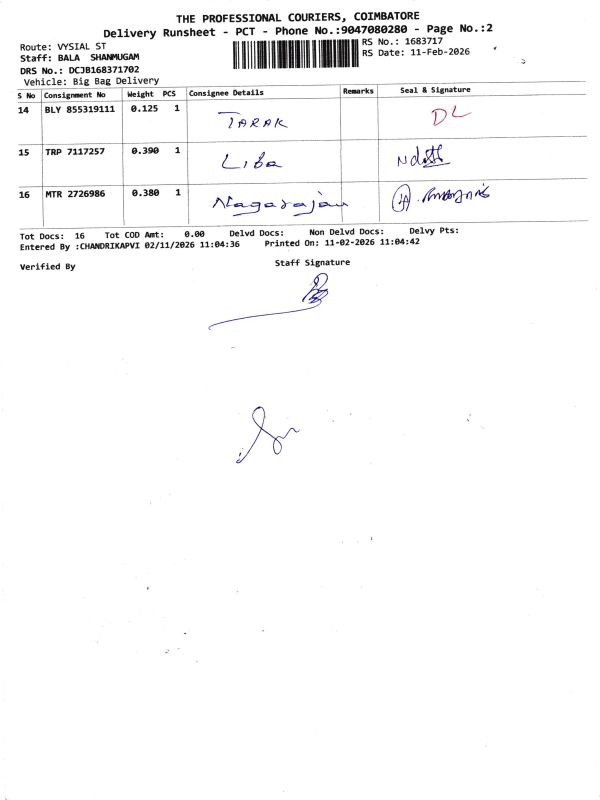 THE PROFESSIONAL COURIERS, COIMBATORE
Delivery Runsheet - PCT - Phone No.:9047080280 - Page No.:2
Route: VYSIAL ST
RS No.: 1683717
Staff: BALA SHANMUGAM
RS Date: 11-Feb-2026
DRS No.: DCJB168371702
Vehicle: Big Bag Delivery
S No Consignment No Weight PCS Consignee Details Remarks Seal & Signature
14 BLY 855319111 0.125 1 TARAK DL
15 TRP 7117257 0.390 1 Liba
16 MTR 2726986 0.380 1 Nagarajan
Tot Docs: 16 Tot COD Amt: 0.00 Delvd Docs: Non Delvd Docs: Delvy Pts:
Entered By :CHANDRIKAPVI 02/11/2026 11:04:36 Printed On: 11-02-2026 11:04:42
Verified By Staff Signature